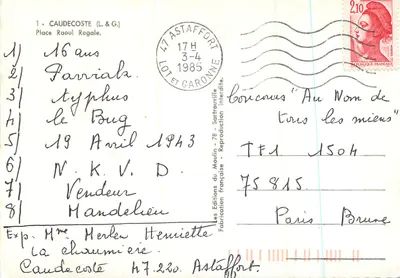 1 - CAUDECOSTE (L. & G.)
Place Raoul Rogale.
47 ASTAFFORT
17H
3-4
1985
LOT ET GARONNE
2,10
1/ 16 ans
2/ Parviak
3/ typhus
4/ le Bug
5/ 19 Avril 1943
6/ N. K. V. D.
7/ Vendeur
8/ Mandelieu
Exp. Mme Merlen Henriette
La chaumière
Caudecoste 47.220. Astaffort.
Les Editions du Moulin - 78 - Sartrouville
Fabrication française - Reproduction interdite.
Concours "Au Nom de
tous les miens"
TF1 1504
75815
Paris Brune